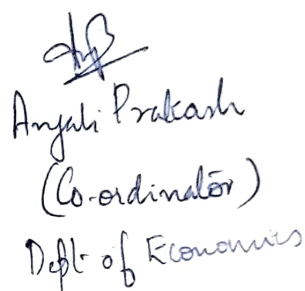 Anjali Prakash
(Co-ordinator)
Dept of Economics